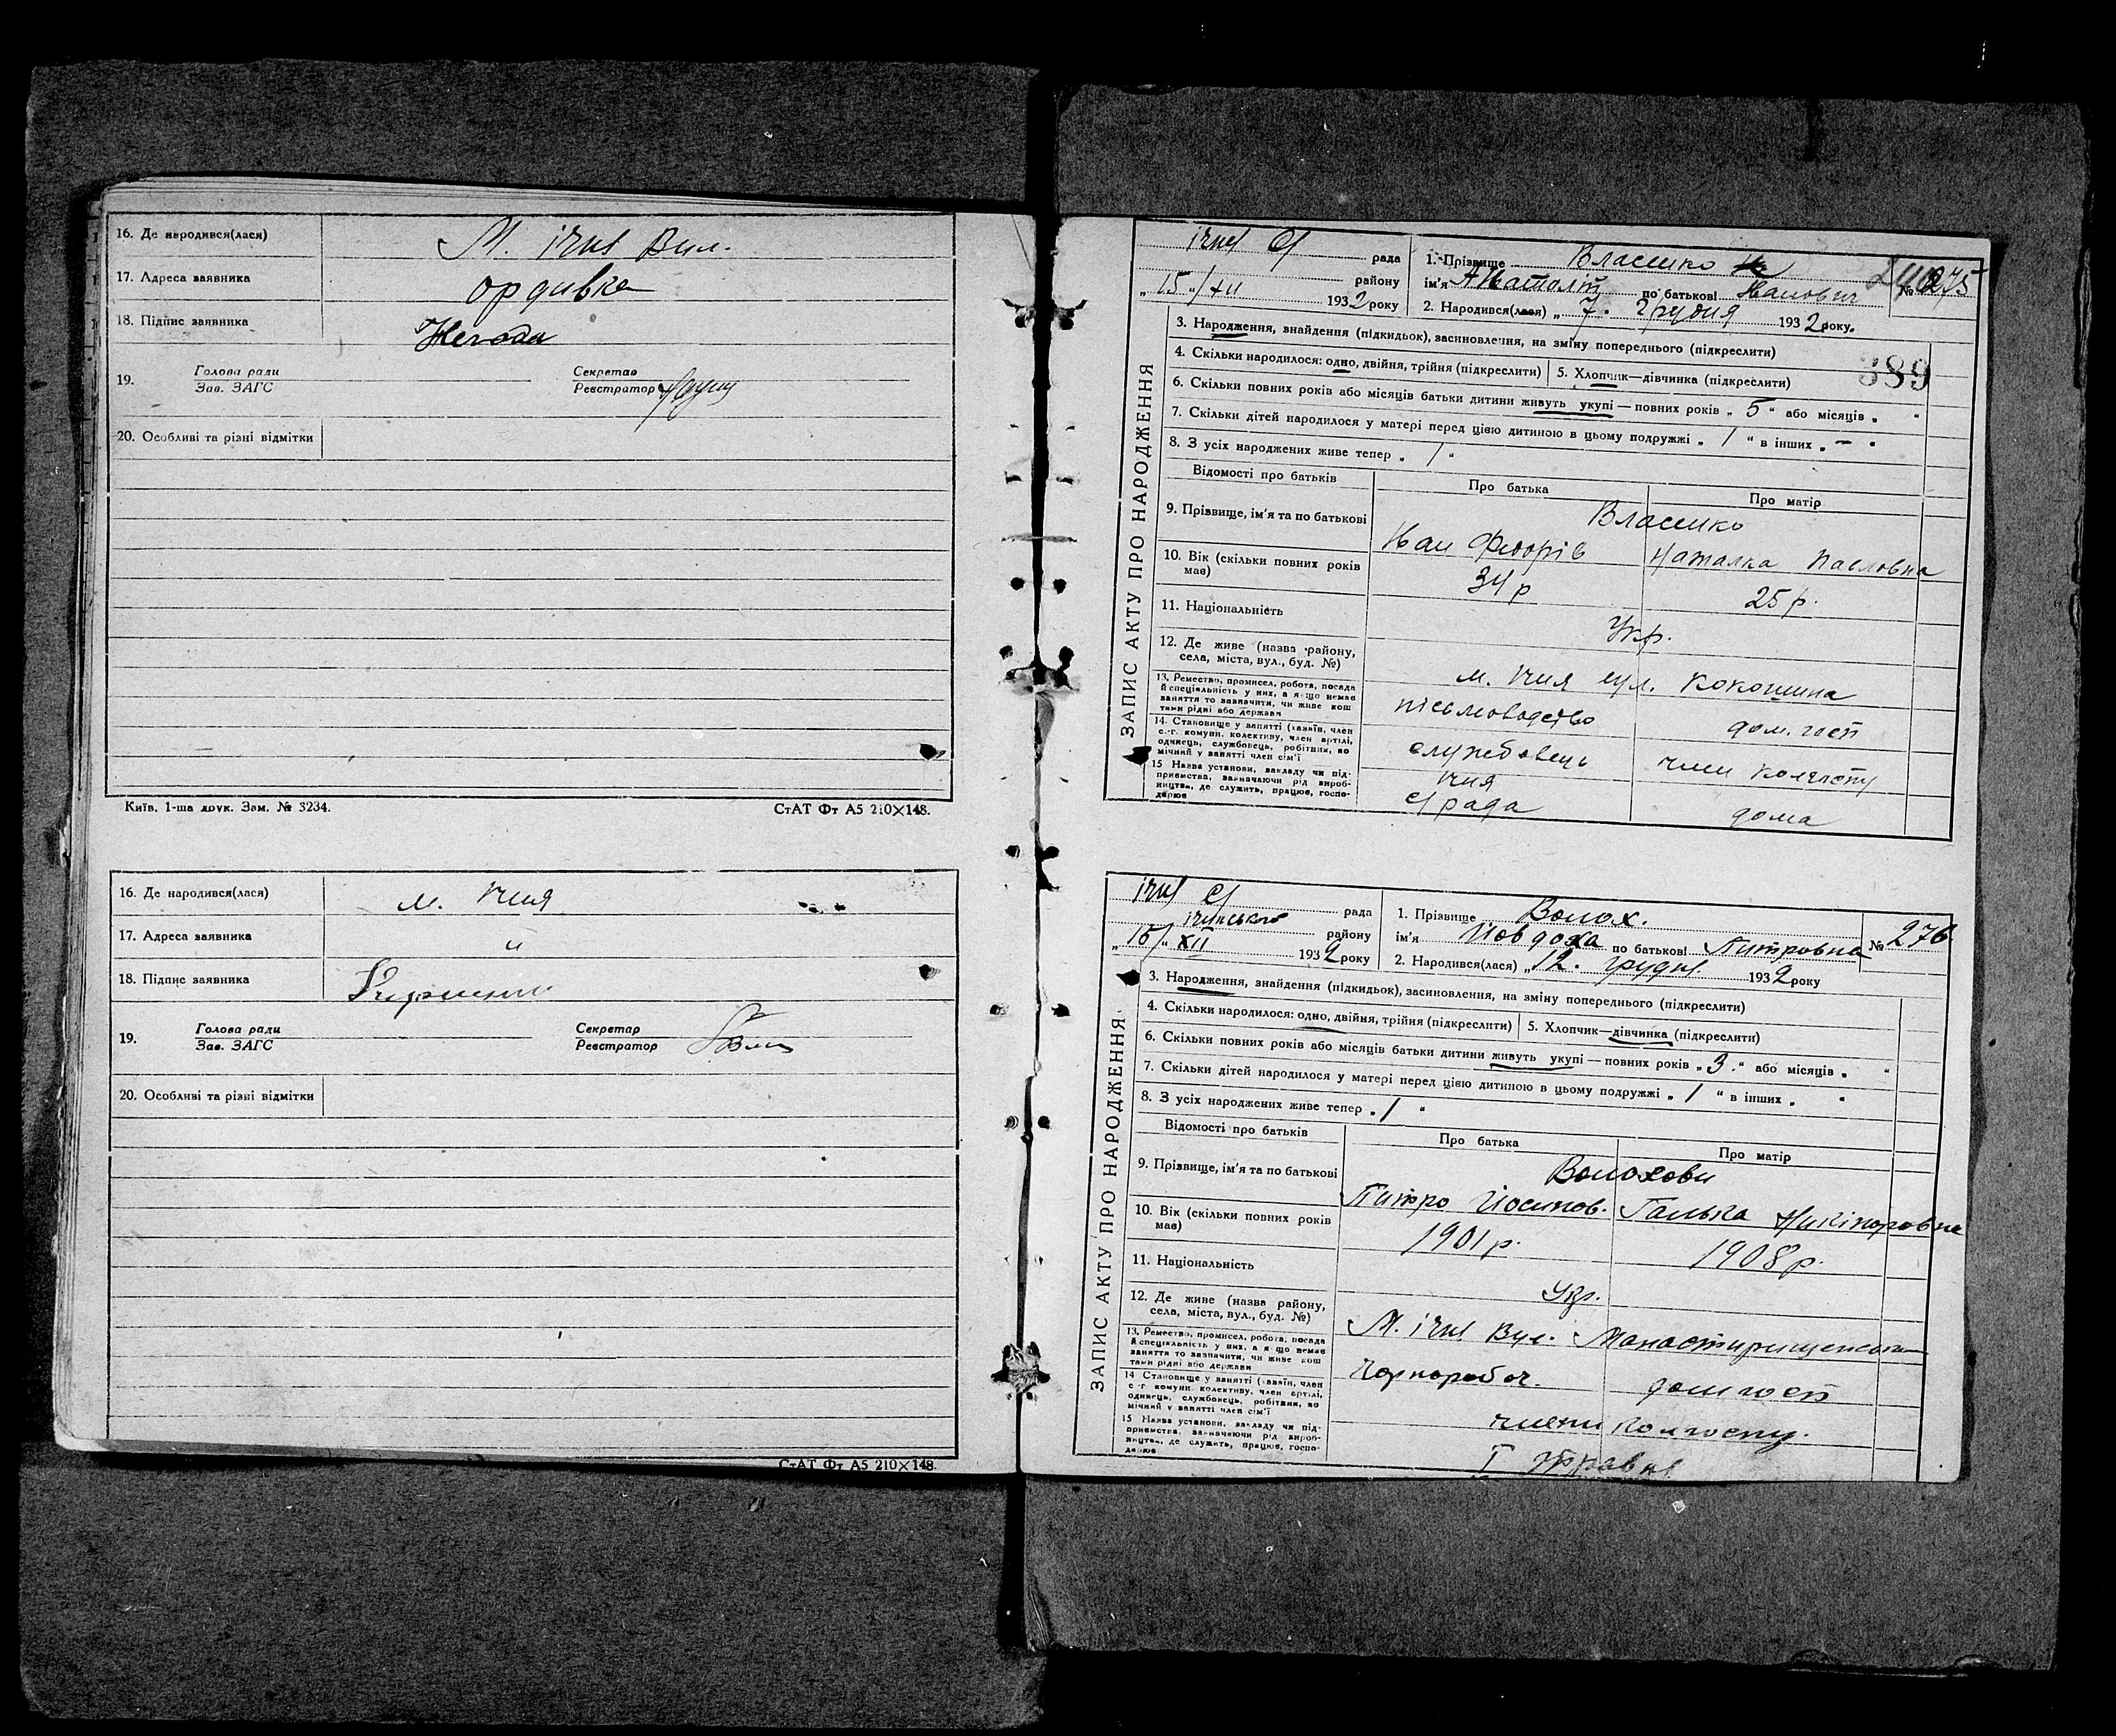 16. Де народився(лася) М. ічня Вул.
17. Адреса заявника ордивка
18. Підпис заявника Негода
19. Голова ради Секретар
Зав. ЗАГС Реєстратор
20. Особливі та різні відмітки
Київ, 1-ша друк. Зам. № 3234. СтАТ Фт А5 210×148.
16. Де народився(лася) м. Ічня
17. Адреса заявника "
18. Підпис заявника
19. Голова ради Секретар
Зав. ЗАГС Реєстратор
20. Особливі та різні відмітки
СтАТ Фт А5 210×148.
ЗАПИС АКТУ ПРО НАРОДЖЕННЯ
ічня с/ рада 1. Прізвище Власенко
району ім'я Анатолій по батькові Іванович № 275
„ 15 "/XII 1932 року 2. Народився(лася) „ 7. грудня 1932 року.
389
3. Народження, знайдення (підкидьок), засиновлення, на зміну попереднього (підкреслити)
4. Скільки народилося: одно, двійня, трійня (підкреслити) 5. Хлопчик—дівчинка (підкреслити)
6. Скільки повних років або місяців батьки дитини живуть укупі — повних років „ 5 " або місяців „ "
7. Скільки дітей народилося у матері перед цією дитиною в цьому подружжі „ 1 " в інших „ — "
8. З усіх народжених живе тепер „ 1 "
Відомості про батьків Про батька Про матір
Власенко
9. Прізвище, ім'я та по батькові Іван Федорів Наталка Павловна
10. Вік (скільки повних років має) 34 р 25 р.
11. Національність Укр.
12. Де живе (назва району, села, міста, вул., буд. №) м. Ічня вул. Кокошина
13. Ремество, промисел, робота, посада й спеціяльність у них, а якщо немає заняття то зазначити, чи живе коштами рідні або держави письмоводство дом. госп
14. Становище у занятті (хазяїн, член с.-г. комуни, колективу, член артілі, одинець, службовець, робітник, помічний у занятті член сім'ї службовець член колгоспу
15 Назва установи, закладу чи підприємства, зазначаючи рід виробництва, де служить, працює, господарює Ічня с/рада дома
ЗАПИС АКТУ ПРО НАРОДЖЕННЯ
ічня с/ рада 1. Прізвище Волох.
ічнянського району ім'я Иовдоха по батькові Питровна № 276
„ 15/" XII 1932 року 2. Народився(лася) „ 12. грудня 1932 року
3. Народження, знайдення (підкидьок), засиновлення, на зміну попереднього (підкреслити)
4. Скільки народилося: одно, двійня, трійня (підкреслити) 5. Хлопчик—дівчинка (підкреслити)
6. Скільки повних років або місяців батьки дитини живуть укупі — повних років „ 3. " або місяців „ "
7. Скільки дітей народилося у матері перед цією дитиною в цьому подружжі „ 1 " в інших „ "
8. З усіх народжених живе тепер „ 1 "
Відомості про батьків Про батька Про матір
Волохови
9. Прізвище, ім'я та по батькові Питро Йосипов. Галька Никіпоровна
10. Вік (скільки повних років має) 1901 р. 1908 р.
11. Національність Укр.
12. Де живе (назва району, села, міста, вул., буд. №) М. ічня Вул. Манастирищенська
13. Ремество, промисел, робота, посада й спеціяльність у них, а якщо немає заняття то зазначити, чи живе коштами рідні або держави Чорнороб оч. дом госп
14 Становище у занятті (хазяїн, член с.-г. комуни, колективу, член артілі, одинець, службовець, робітник, помічний у занятті член сім'ї члени колгоспу.
15 Назва установи, закладу чи підприємства, зазначаючи рід виробництва, де служить, працює, господарює І Травня